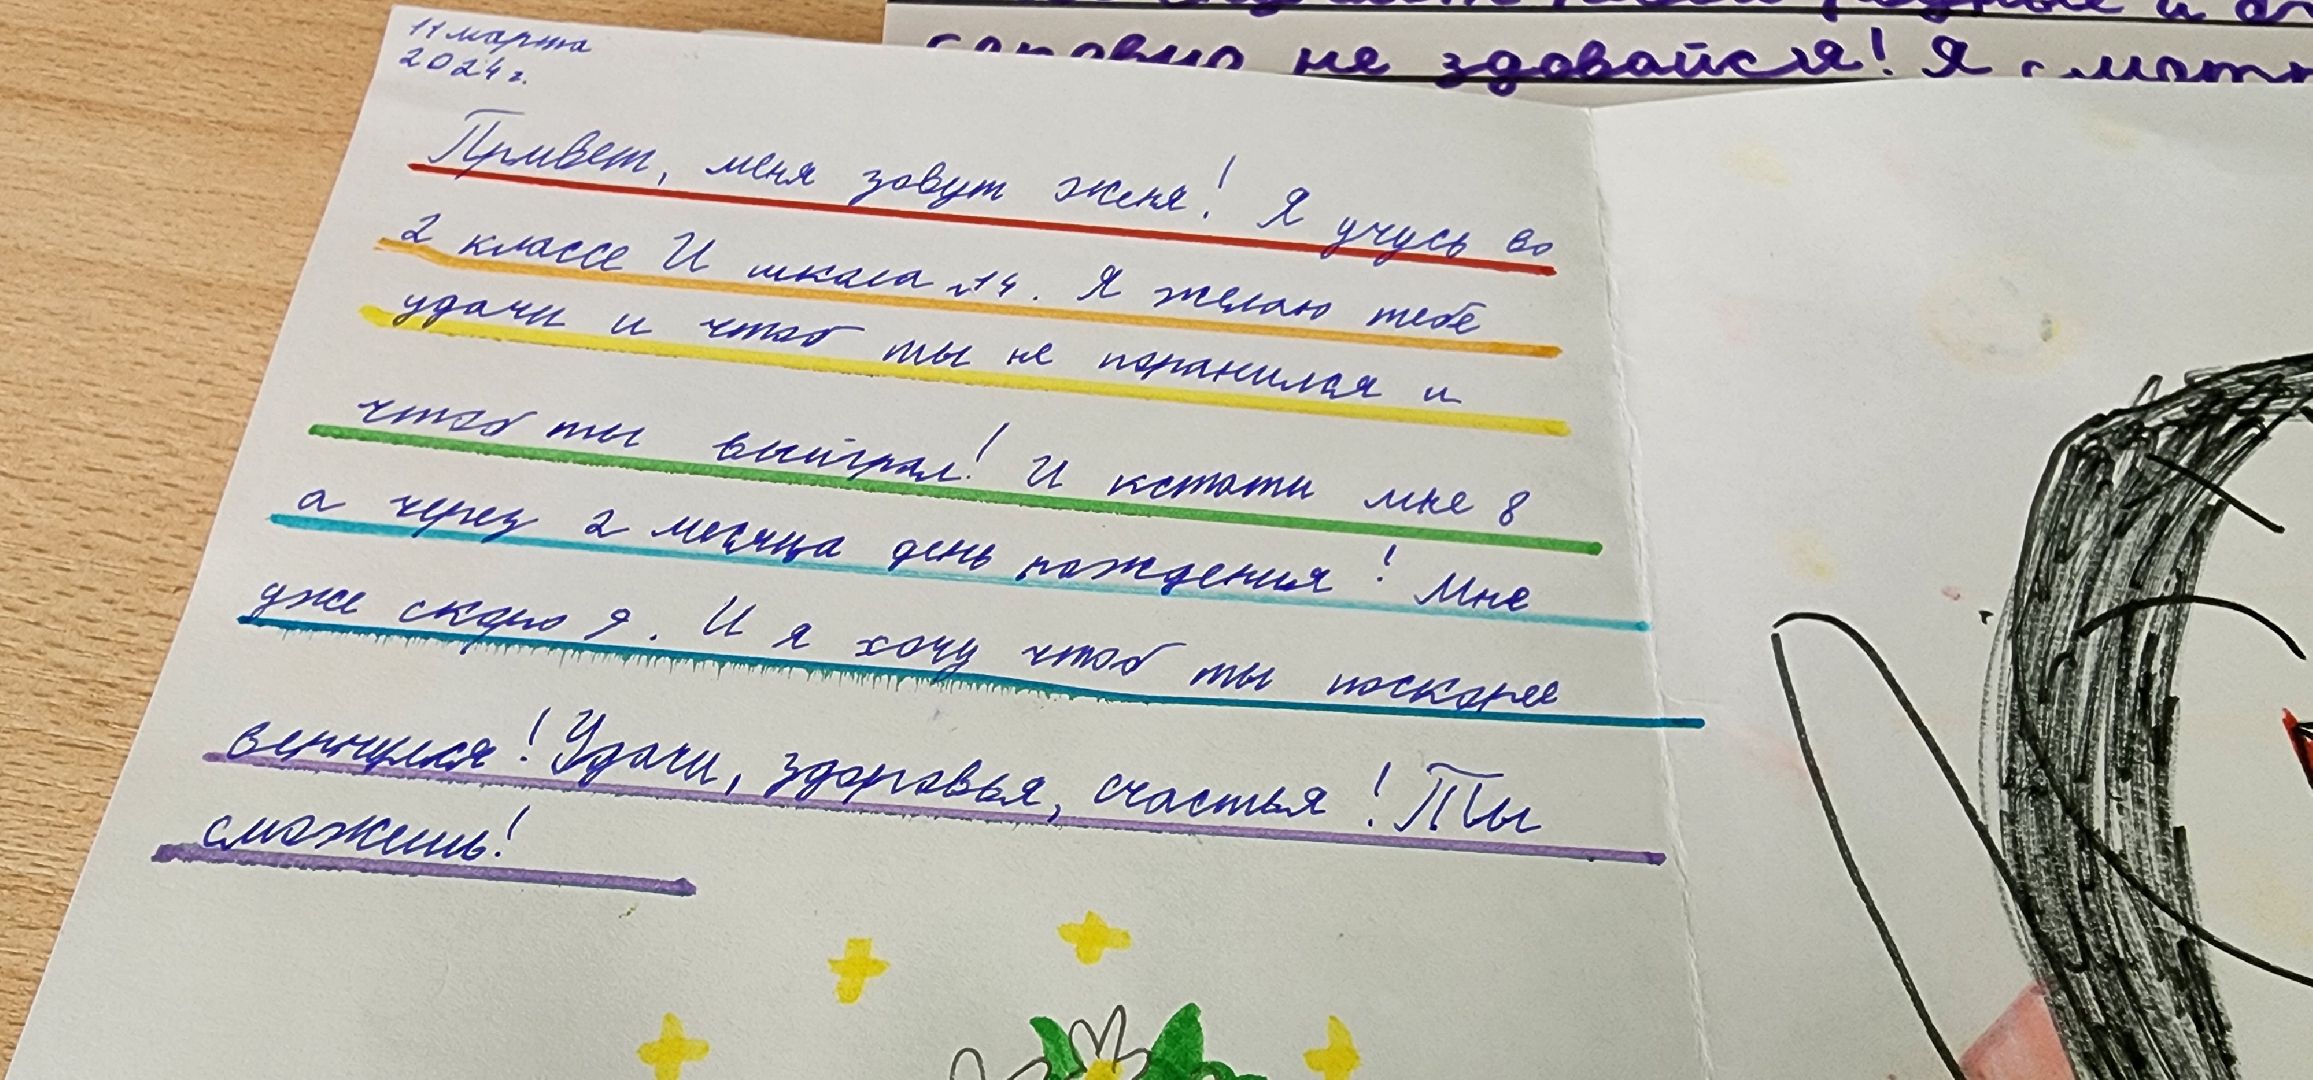 не здовайся! Я
11 марта
2024 г.
Привет, меня зовут женя! Я учусь во
2 классе И шкала №14. Я желаю тебе
удачи и чтоб ты не поранился и
чтоб ты выйграл! И кстати мне 8
а через 2 месяца день рождения! Мне
уже скоро 9. И я хочу чтоб ты поскорее
вернулся! Удачи, здоровья, счастья! Ты
сможешь!